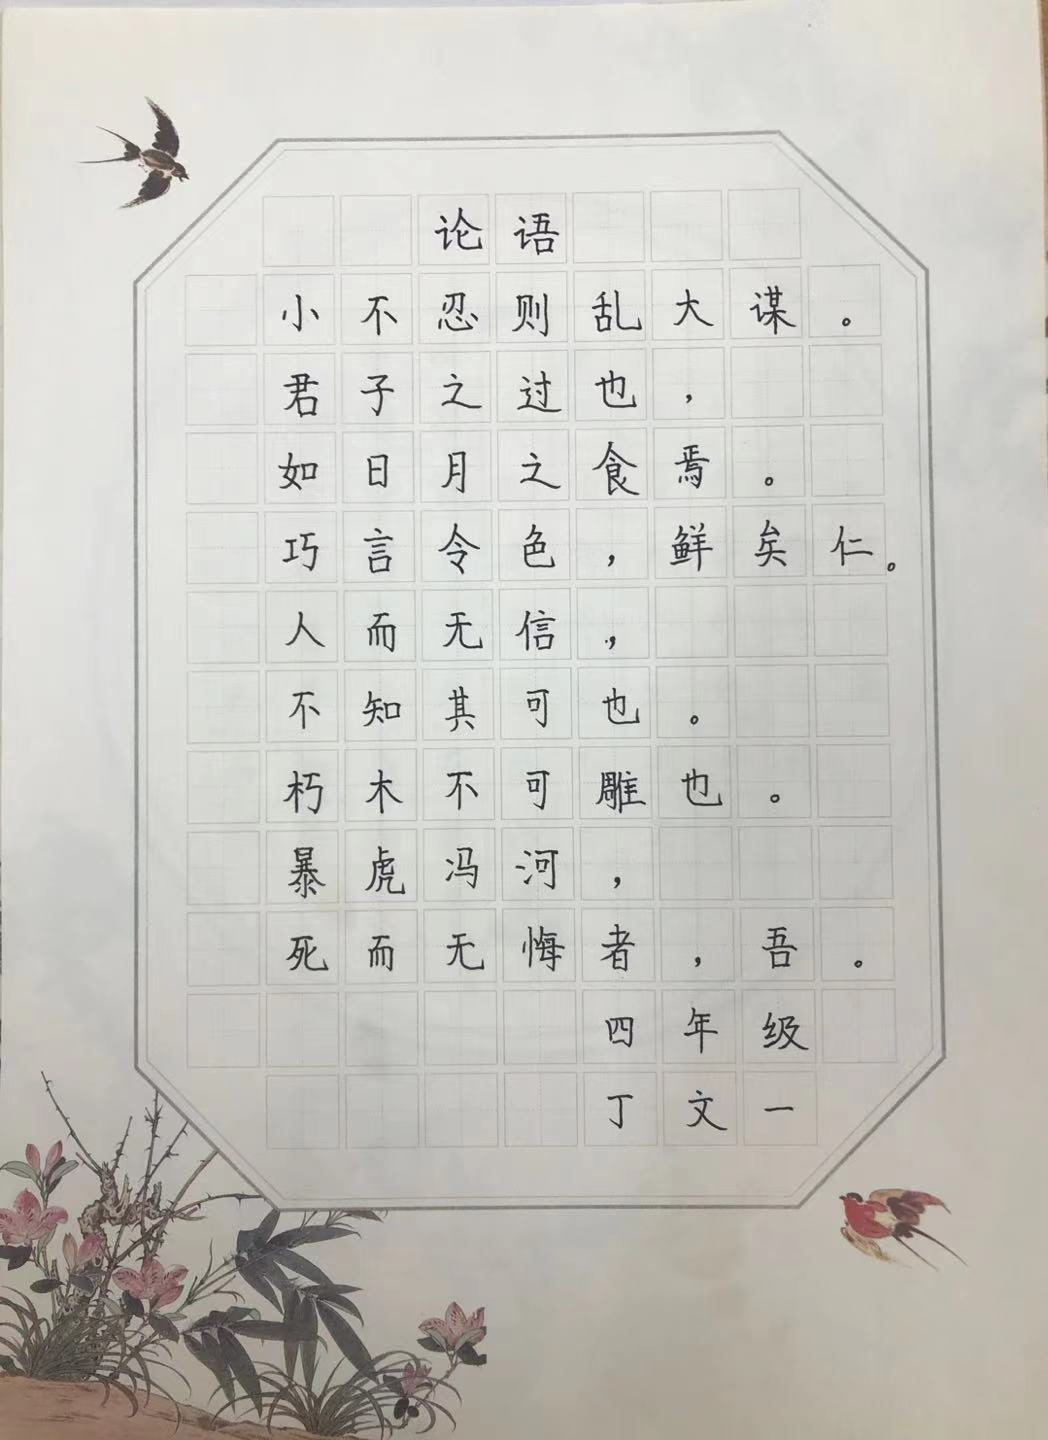 论语
小不忍则乱大谋。
君子之过也，
如日月之食焉。
巧言令色，鲜矣仁。
人而无信，
不知其可也。
朽木不可雕也。
暴虎冯河，
死而无悔者，吾。
四年级
丁文一